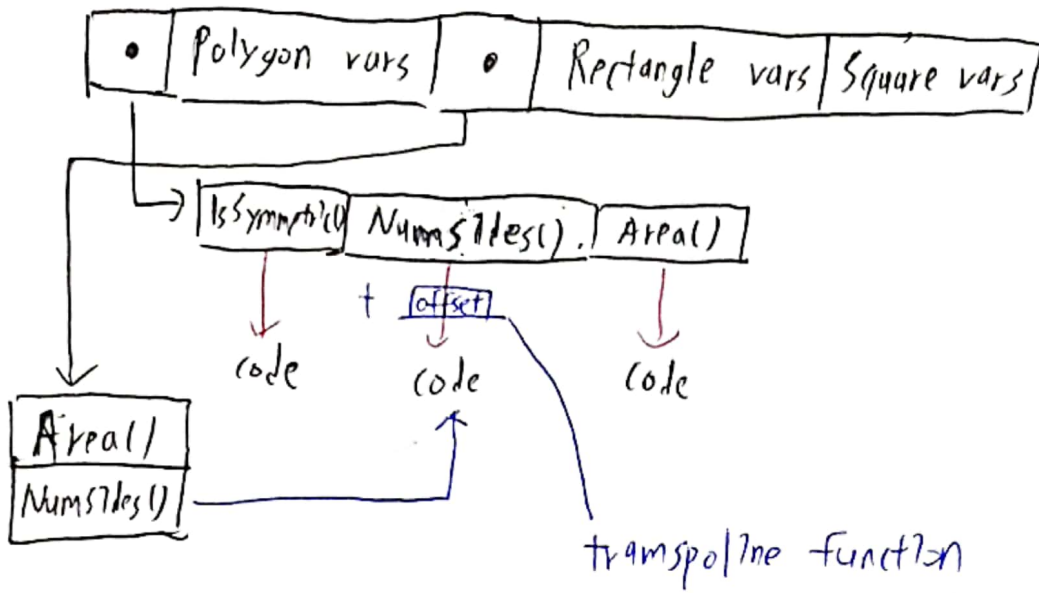 Polygon vars Rectangle vars Square vars
IsSymmetric() NumsIdes(). Area()
+ offset
code code code
Area()
NumsIdes()
transpoline function